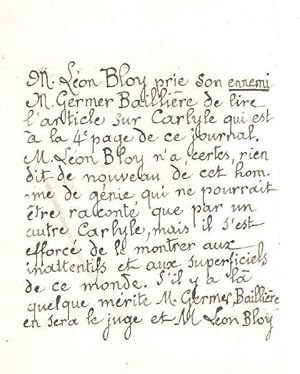 M. Léon Bloy prie son ennemi
M. Germer Baillière de lire
l'article sur Carlyle qui est
à la 4e page de ce journal.
M. Léon Bloy n'a, certes, rien
dit de nouveau de cet hom-
-me de génie qui ne pourrait
être raconté que par un
autre Carlyle, mais il s'est
efforcé de le montrer aux
inattentifs et aux superficiels
de ce monde. S'il y a là
quelque mérite M. Germer Baillière
en sera le juge et M Léon Bloy